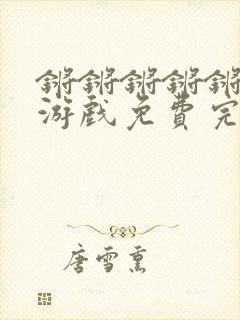 锵锵锵锵锵
游戏免费完
唐雪熏